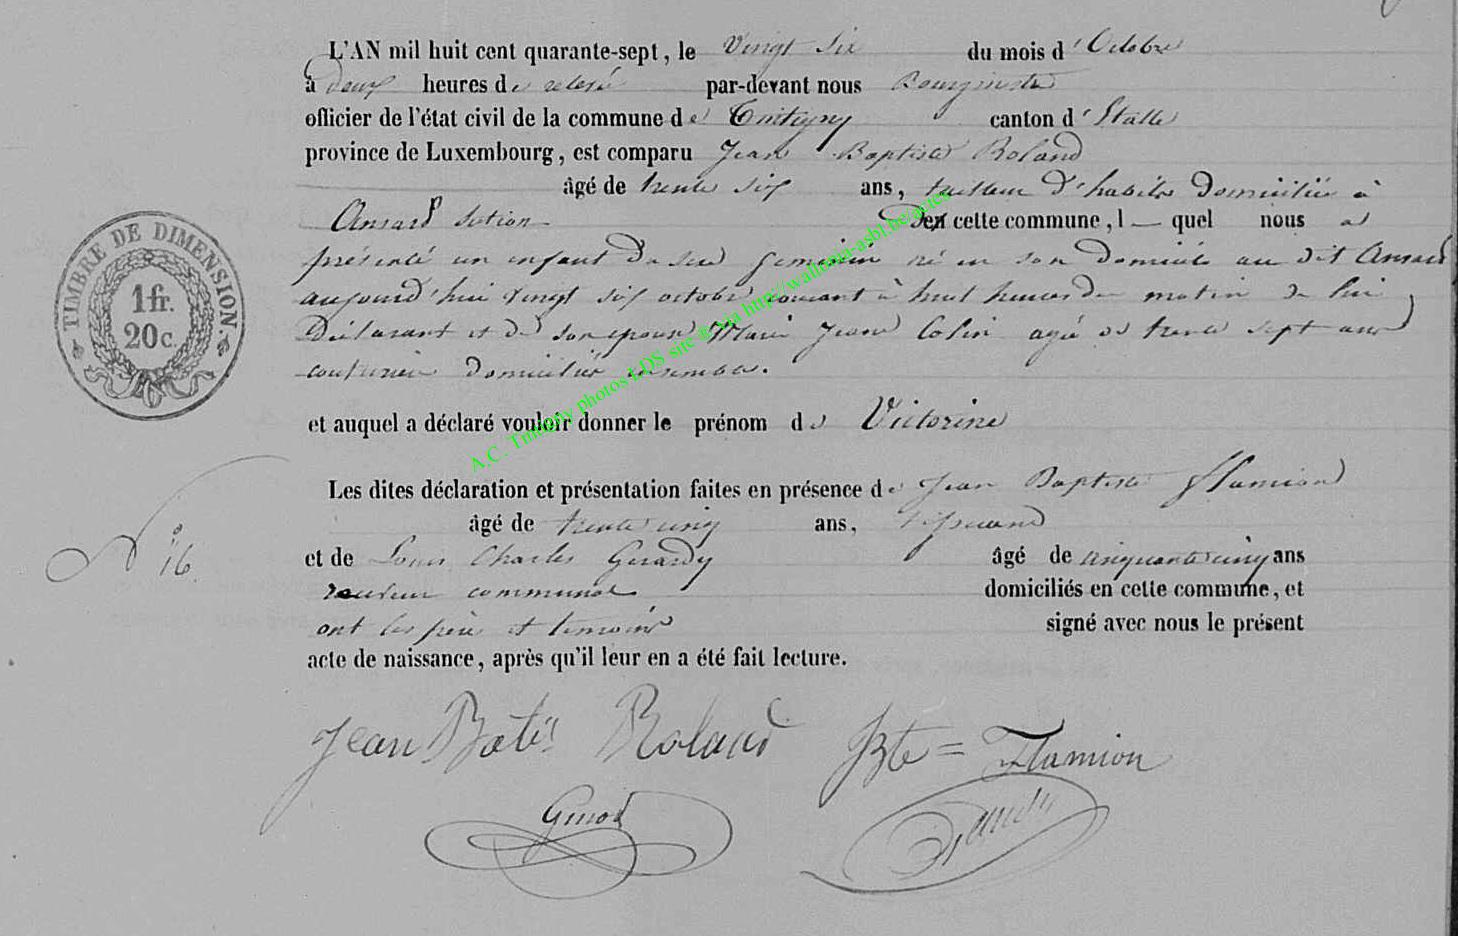 L'AN mil huit cent quarante-sept, le Vingt Six du mois d'Octobre
à deux heures de relevé par-devant nous Bourgmestre
officier de l'état civil de la commune de Tintigny canton d'Etalle
province de Luxembourg, est comparu Jean Baptiste Roland
âgé de trente six ans, tailleur d'habits domicilié à
Ansart section De cette commune, l — quel nous a
présenté un enfant du sexe feminin né en son domicile au dit Ansart
aujourd'hui vingt six octobre courant à huit heures du matin de lui
Déclarant et de son epouse Marie Jeanne Colin agée de trente sept ans
couturière domiciliés ensemble.
et auquel a déclaré vouloir donner le prénom de Victorine
Les dites déclaration et présentation faites en présence de Jean Baptiste Flamion
âgé de trente cinq ans, Tisserand
et de Louis Charles Gerardy âgé de cinquante cinq ans
receveur communal domiciliés en cette commune, et
ont les père et temoins signé avec nous le présent
acte de naissance, après qu'il leur en a été fait lecture.
Jean Batis Roland JBte = Flamion
TIMBRE DE DIMENSION.
1 fr.
20 c.
No 16.
A.C. Tintigny photos LDS site & via http://wallonia-asbl.be/actes